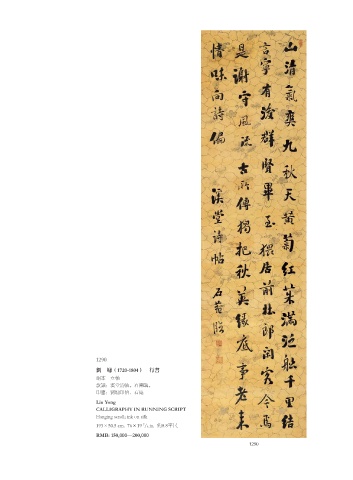 山清氣爽九秋天黃菊紅茱滿泛船千里結
言寧有後群賢畢至猥居前杜郎閒客今焉
是謝守風流古所傳獨把秋英緣底事老來
情味向詩偏 溪堂詩帖 石菴臨
1290
劉 墉(1720-1804) 行書
立軸
款識:
印鑑:
Liu Yong
CALLIGRAPHY IN RUNNING SCRIPT
Hanging scroll; ink on silk
約8.8平尺
RMB: 150,000—200,000
1290